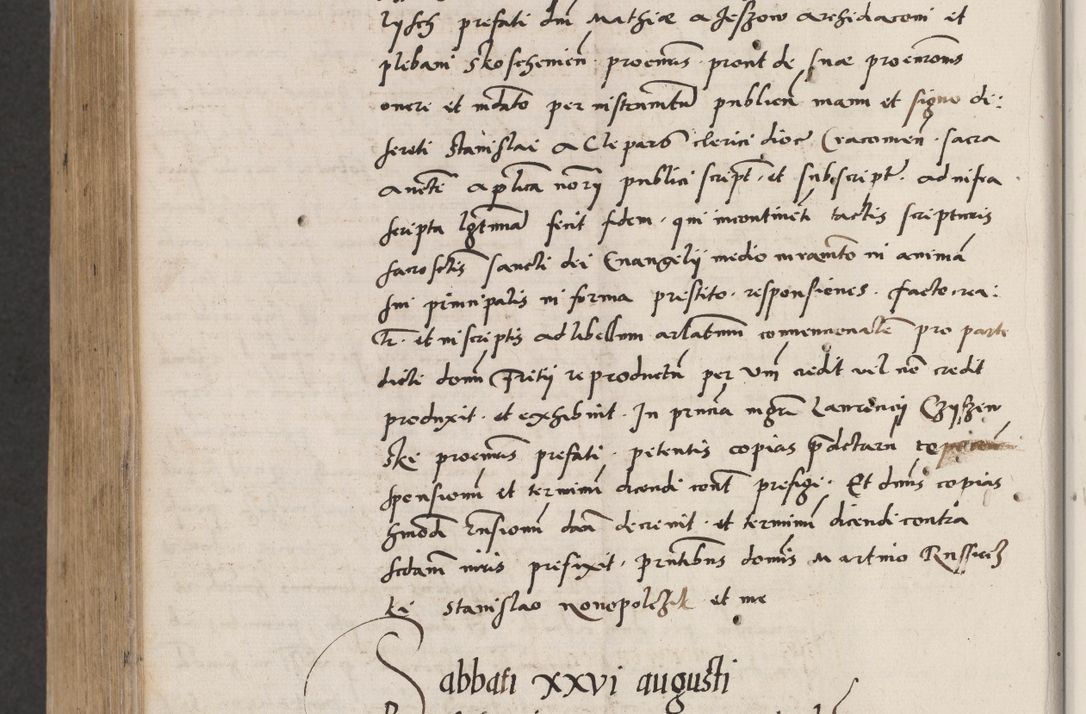 lysch prefati dni Mathiæ a Jeszow archidiaconi et
plebani Skoschenien. procuratoris prout de suæ procurationis
onere et mdato per instrumentu publicu manu et signo di-
screti Stanislai a Clepardo clerici dioc Cracovien. sacra
aucte aplica notarii publici script. et subscript. ad infra
scripta lgtima fecit fidem. qui incontinenti tactis scripturis
sacrosctis sancti dei Euangelij medio iuramto in animā
sui principalis in forma prestito. responsiones. facto rea-
lr. et in scriptis ad libellum articulatum conuentionalem pro parte
dicti domini Fretij reproductu per vm credit vel nō credit
produxit. et exhibuit. In pntia mgri Laurencij Czyszew
ski procuratoris prefati. petentis copias pdictaru
sponsionum et terminū dicendi cont prefigi. Et dnus copias
hmoi rnsionum daā decreuit. et terminū dicendi contra
scdam iuris prefixit. pntibus dominis Martino Russieczs
ki Stanislao Nouopolszki et me
Sabbati xxvi augusti